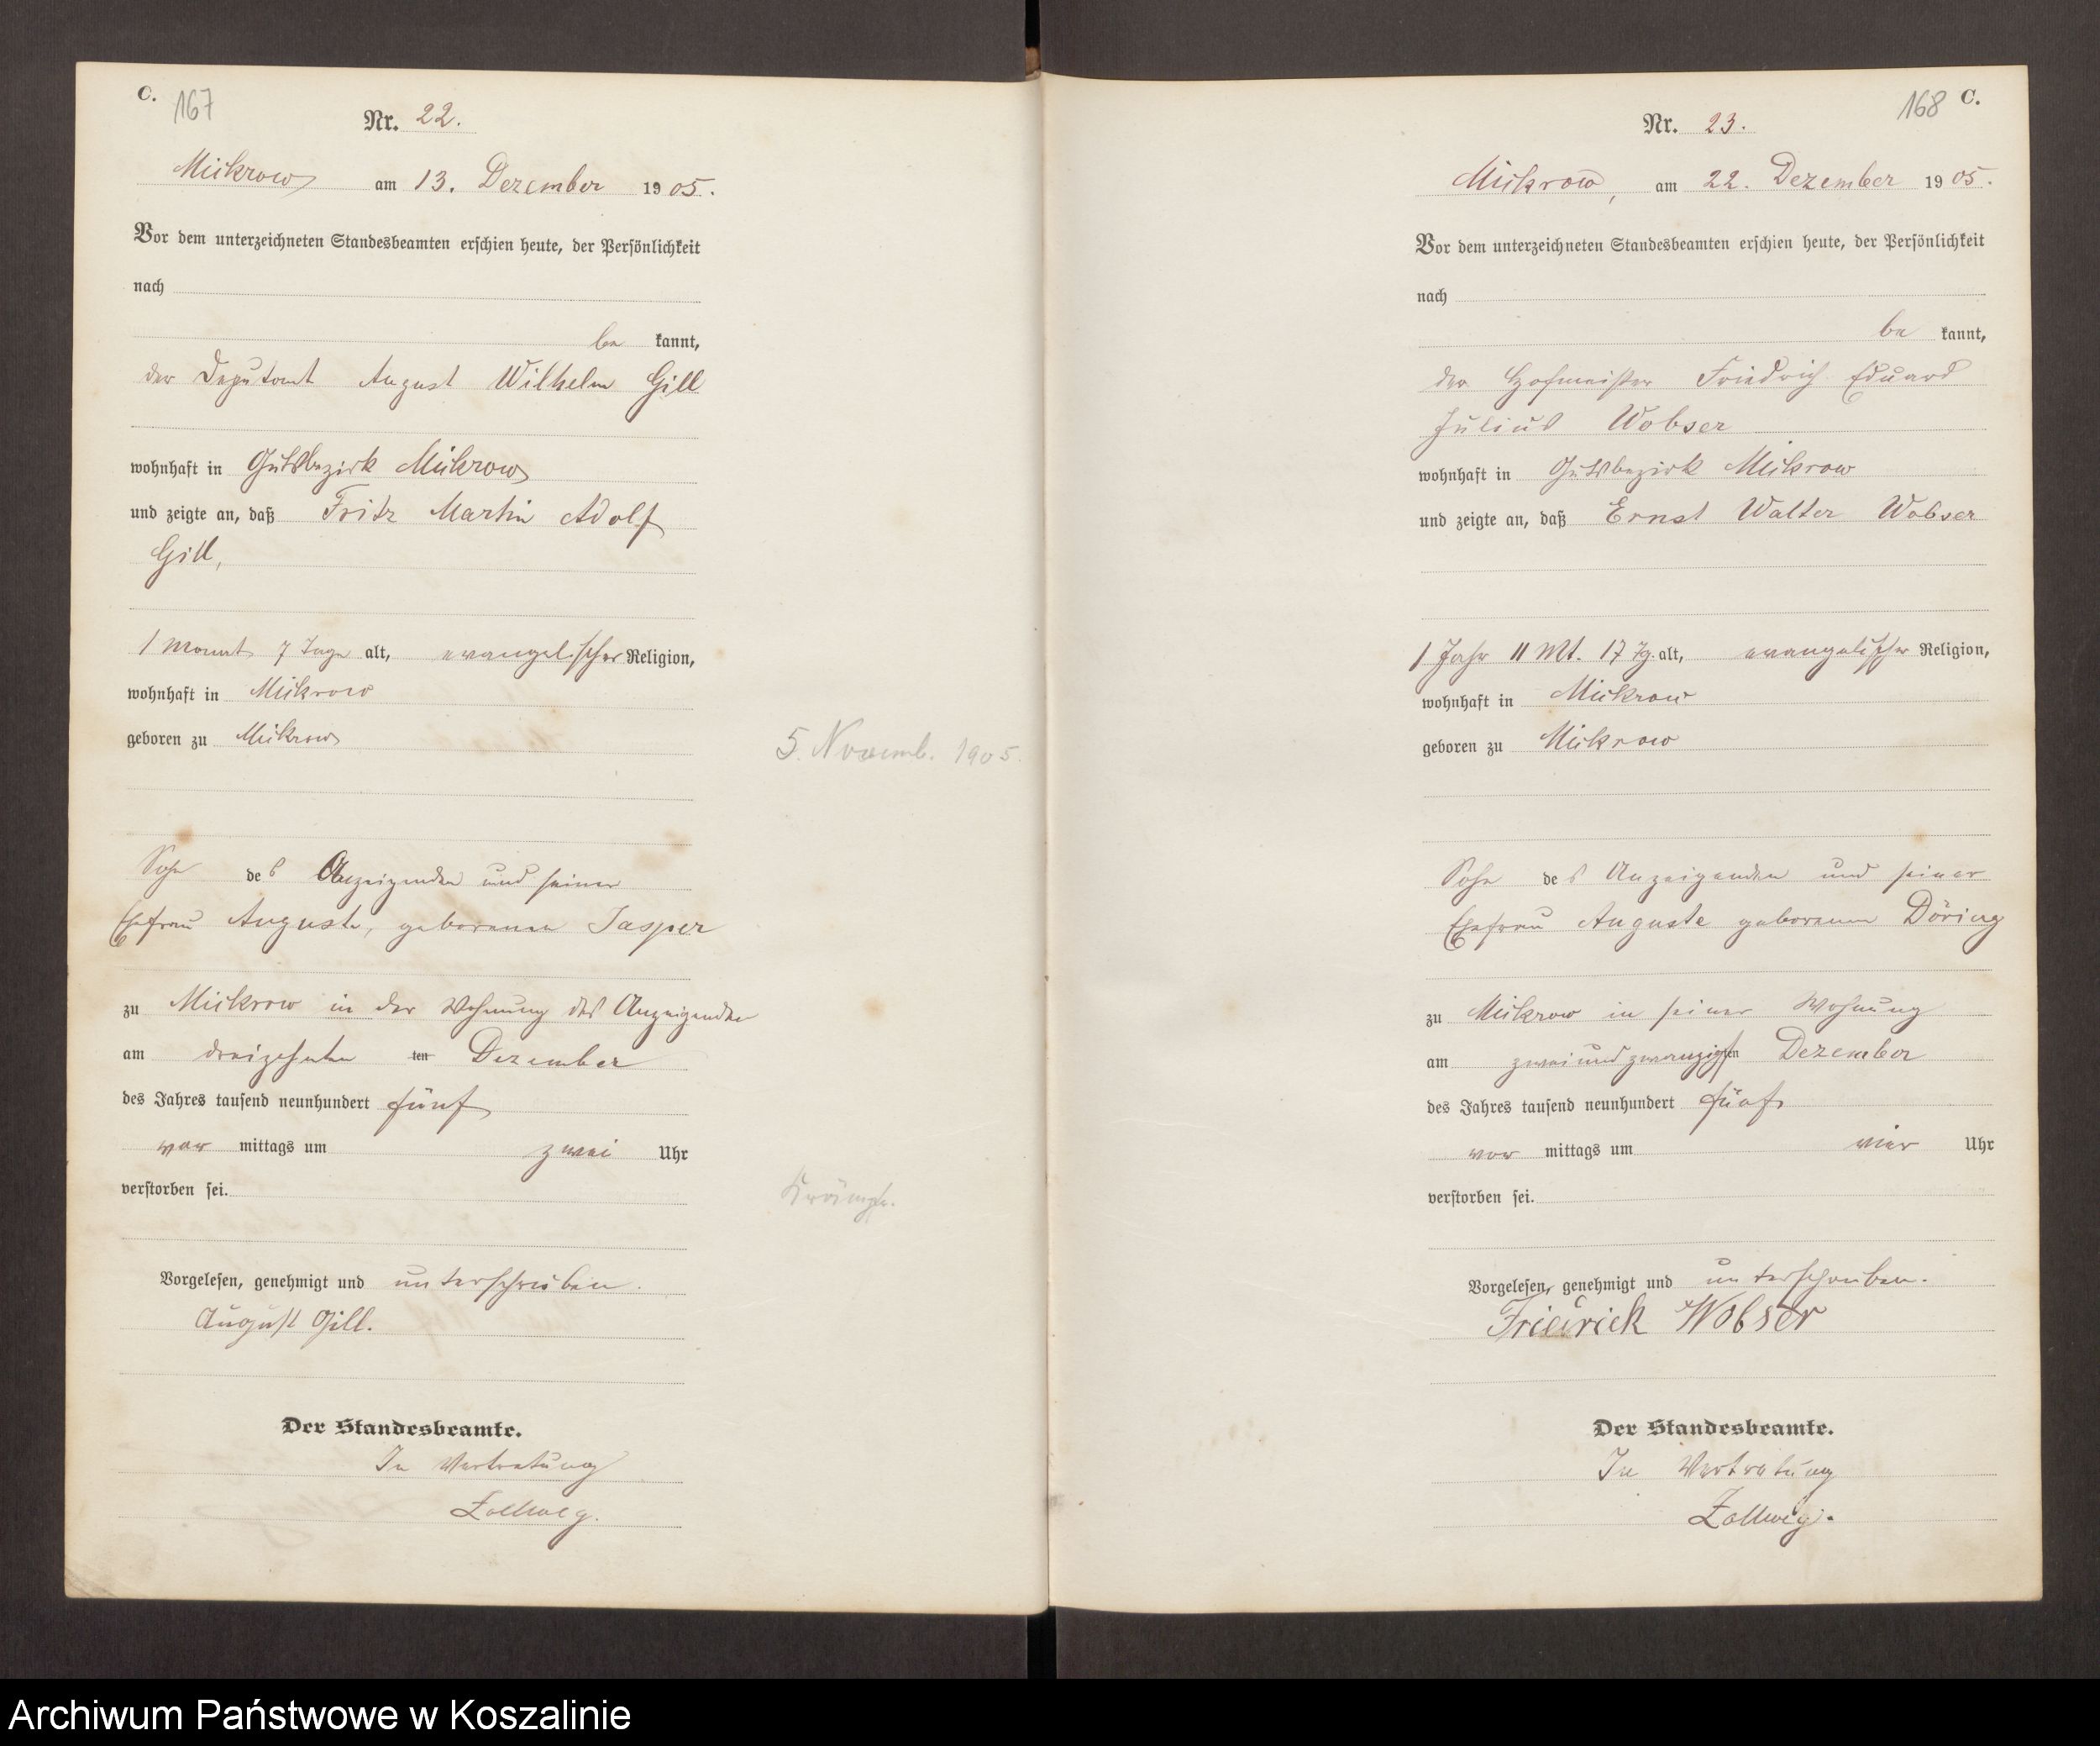 C.
167
Nr. 22.
Mickrow am 13. Dezember 1905.
Vor dem unterzeichneten Standesbeamten erschien heute, der Persönlichkeit
nach
be kannt,
der Deputant August Wilhelm Gill
wohnhaft in Gutsbezirk Mickrow
und zeigte an, daß Fritz Martin Adolf
Gill,
1 Monat 7 Tage alt, evangelischer Religion,
wohnhaft in Mickrow
geboren zu Mickrow
5. Novemb. 1905.
Sohn des Anzeigenden und seiner
Ehefrau Auguste, geborenen Jasper
zu Mickrow in der Wohnung des Anzeigenden
am dreizehnten ten Dezember
des Jahres tausend neunhundert fünf
vor mittags um zwei Uhr
verstorben sei.
Krämpfe.
Vorgelesen, genehmigt und unterschrieben.
August Gill.
Der Standesbeamte.
In Vertretung
Zollweg.
168 C.
Nr. 23.
Mickrow, am 22. Dezember 1905.
Vor dem unterzeichneten Standesbeamten erschien heute, der Persönlichkeit
nach
be kannt,
der Hofmeister Friedrich Eduard
Julius Wobser
wohnhaft in Gutsbezirk Mickrow
und zeigte an, daß Ernst Walter Wobser
1 Jahr 11 Mt. 17 Tg. alt, evangelischer Religion,
wohnhaft in Mickrow
geboren zu Mickrow
Sohn des Anzeigenden und seiner
Ehefrau Auguste geborenen Döring
zu Mickrow in seiner Wohnung
am zweiundzwanzigsten Dezember
des Jahres tausend neunhundert fünf
vor mittags um vier Uhr
verstorben sei.
Vorgelesen, genehmigt und unterschrieben.
Friedrick Wobser
Der Standesbeamte.
In Vertretung
Zollweg.
Archiwum Państwowe w Koszalinie